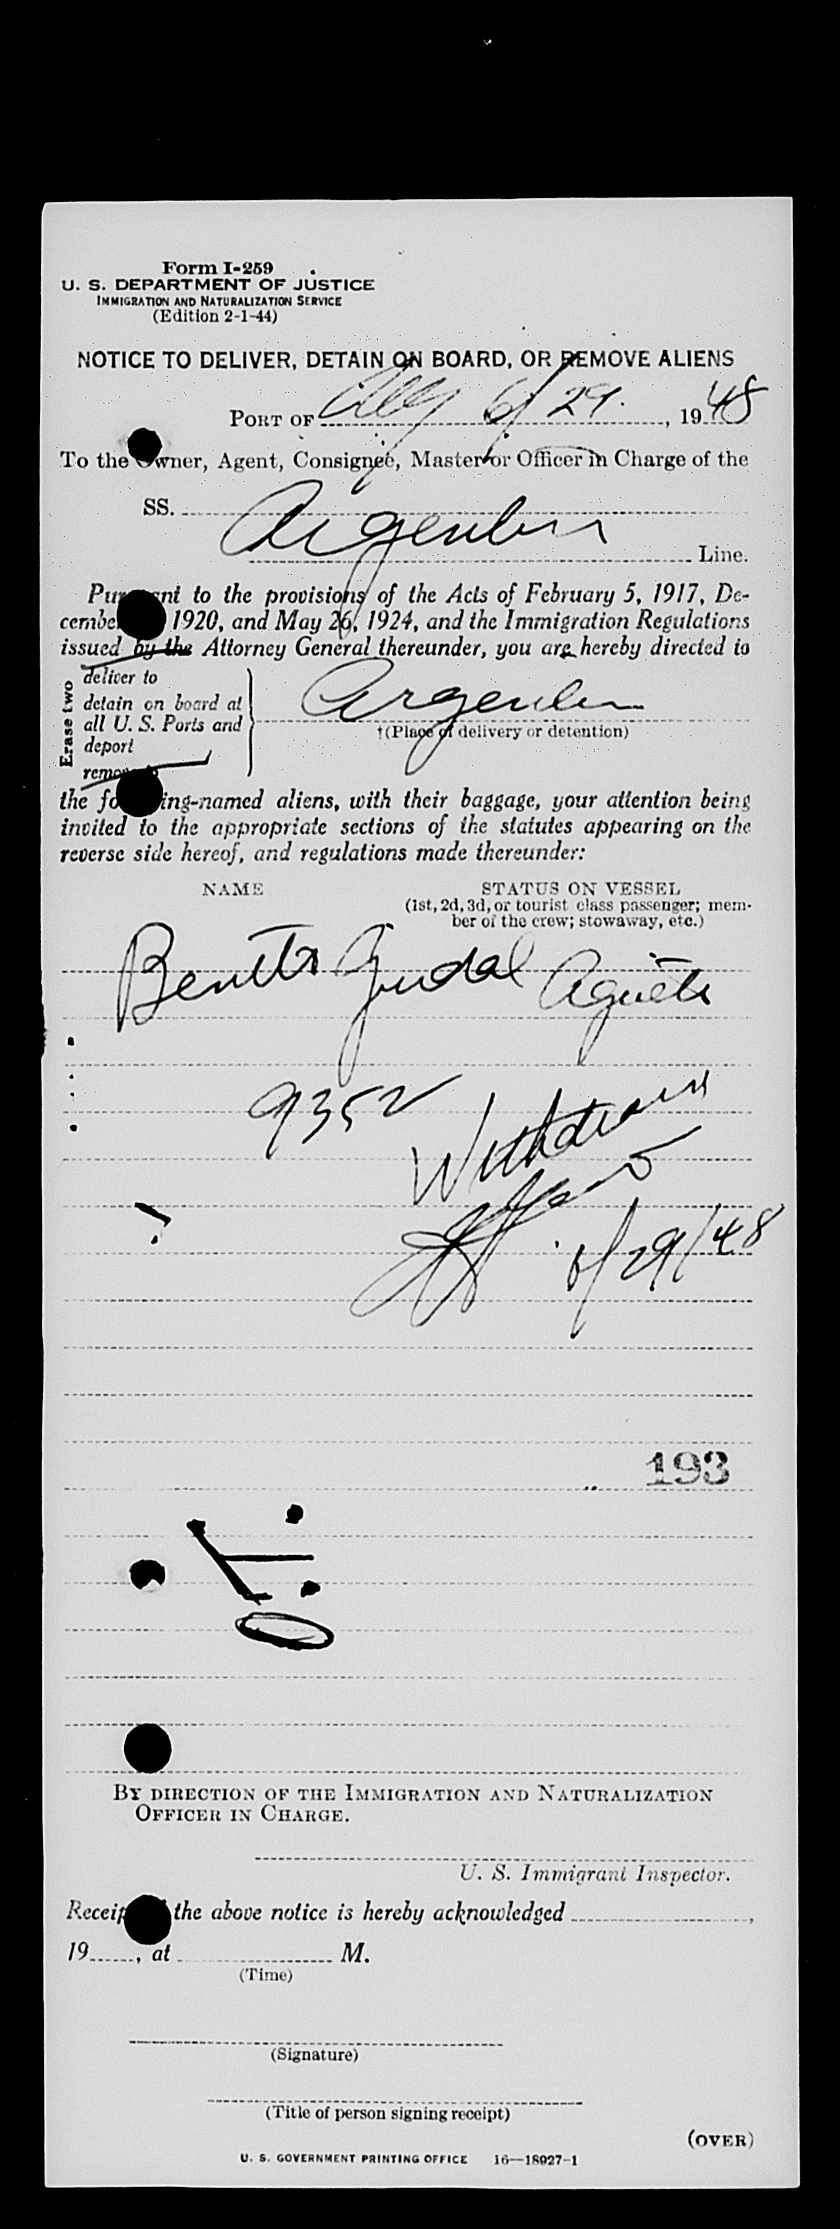 Form I-259
U. S. DEPARTMENT OF JUSTICE
IMMIGRATION AND NATURALIZATION SERVICE
(Edition 2-1-44)
NOTICE TO DELIVER, DETAIN ON BOARD, OR REMOVE ALIENS
PORT OF 6/29. , 1948
To the Owner, Agent, Consignee, Master or Officer in Charge of the
SS. Argentina
Line.
Pursuant to the provisions of the Acts of February 5, 1917, De-
cember 1920, and May 26, 1924, and the Immigration Regulations
issued by the Attorney General thereunder, you are hereby directed to
Erase two
deliver to
detain on board at
all U. S. Ports and
deport
remove to
Argentina
†(Place of delivery or detention)
the following-named aliens, with their baggage, your attention being
invited to the appropriate sections of the statutes appearing on the
reverse side hereof, and regulations made thereunder:
NAME STATUS ON VESSEL
(1st, 2d, 3d, or tourist class passenger; mem-
ber of the crew; stowaway, etc.)
Benito
9352
Withdrawn
6/29/48
193
BY DIRECTION OF THE IMMIGRATION AND NATURALIZATION
OFFICER IN CHARGE.
U. S. Immigrant Inspector.
Receipt of the above notice is hereby acknowledged ,
19 , at M.
(Time)
(Signature)
(Title of person signing receipt)
(OVER)
U. S. GOVERNMENT PRINTING OFFICE 16—18927-1